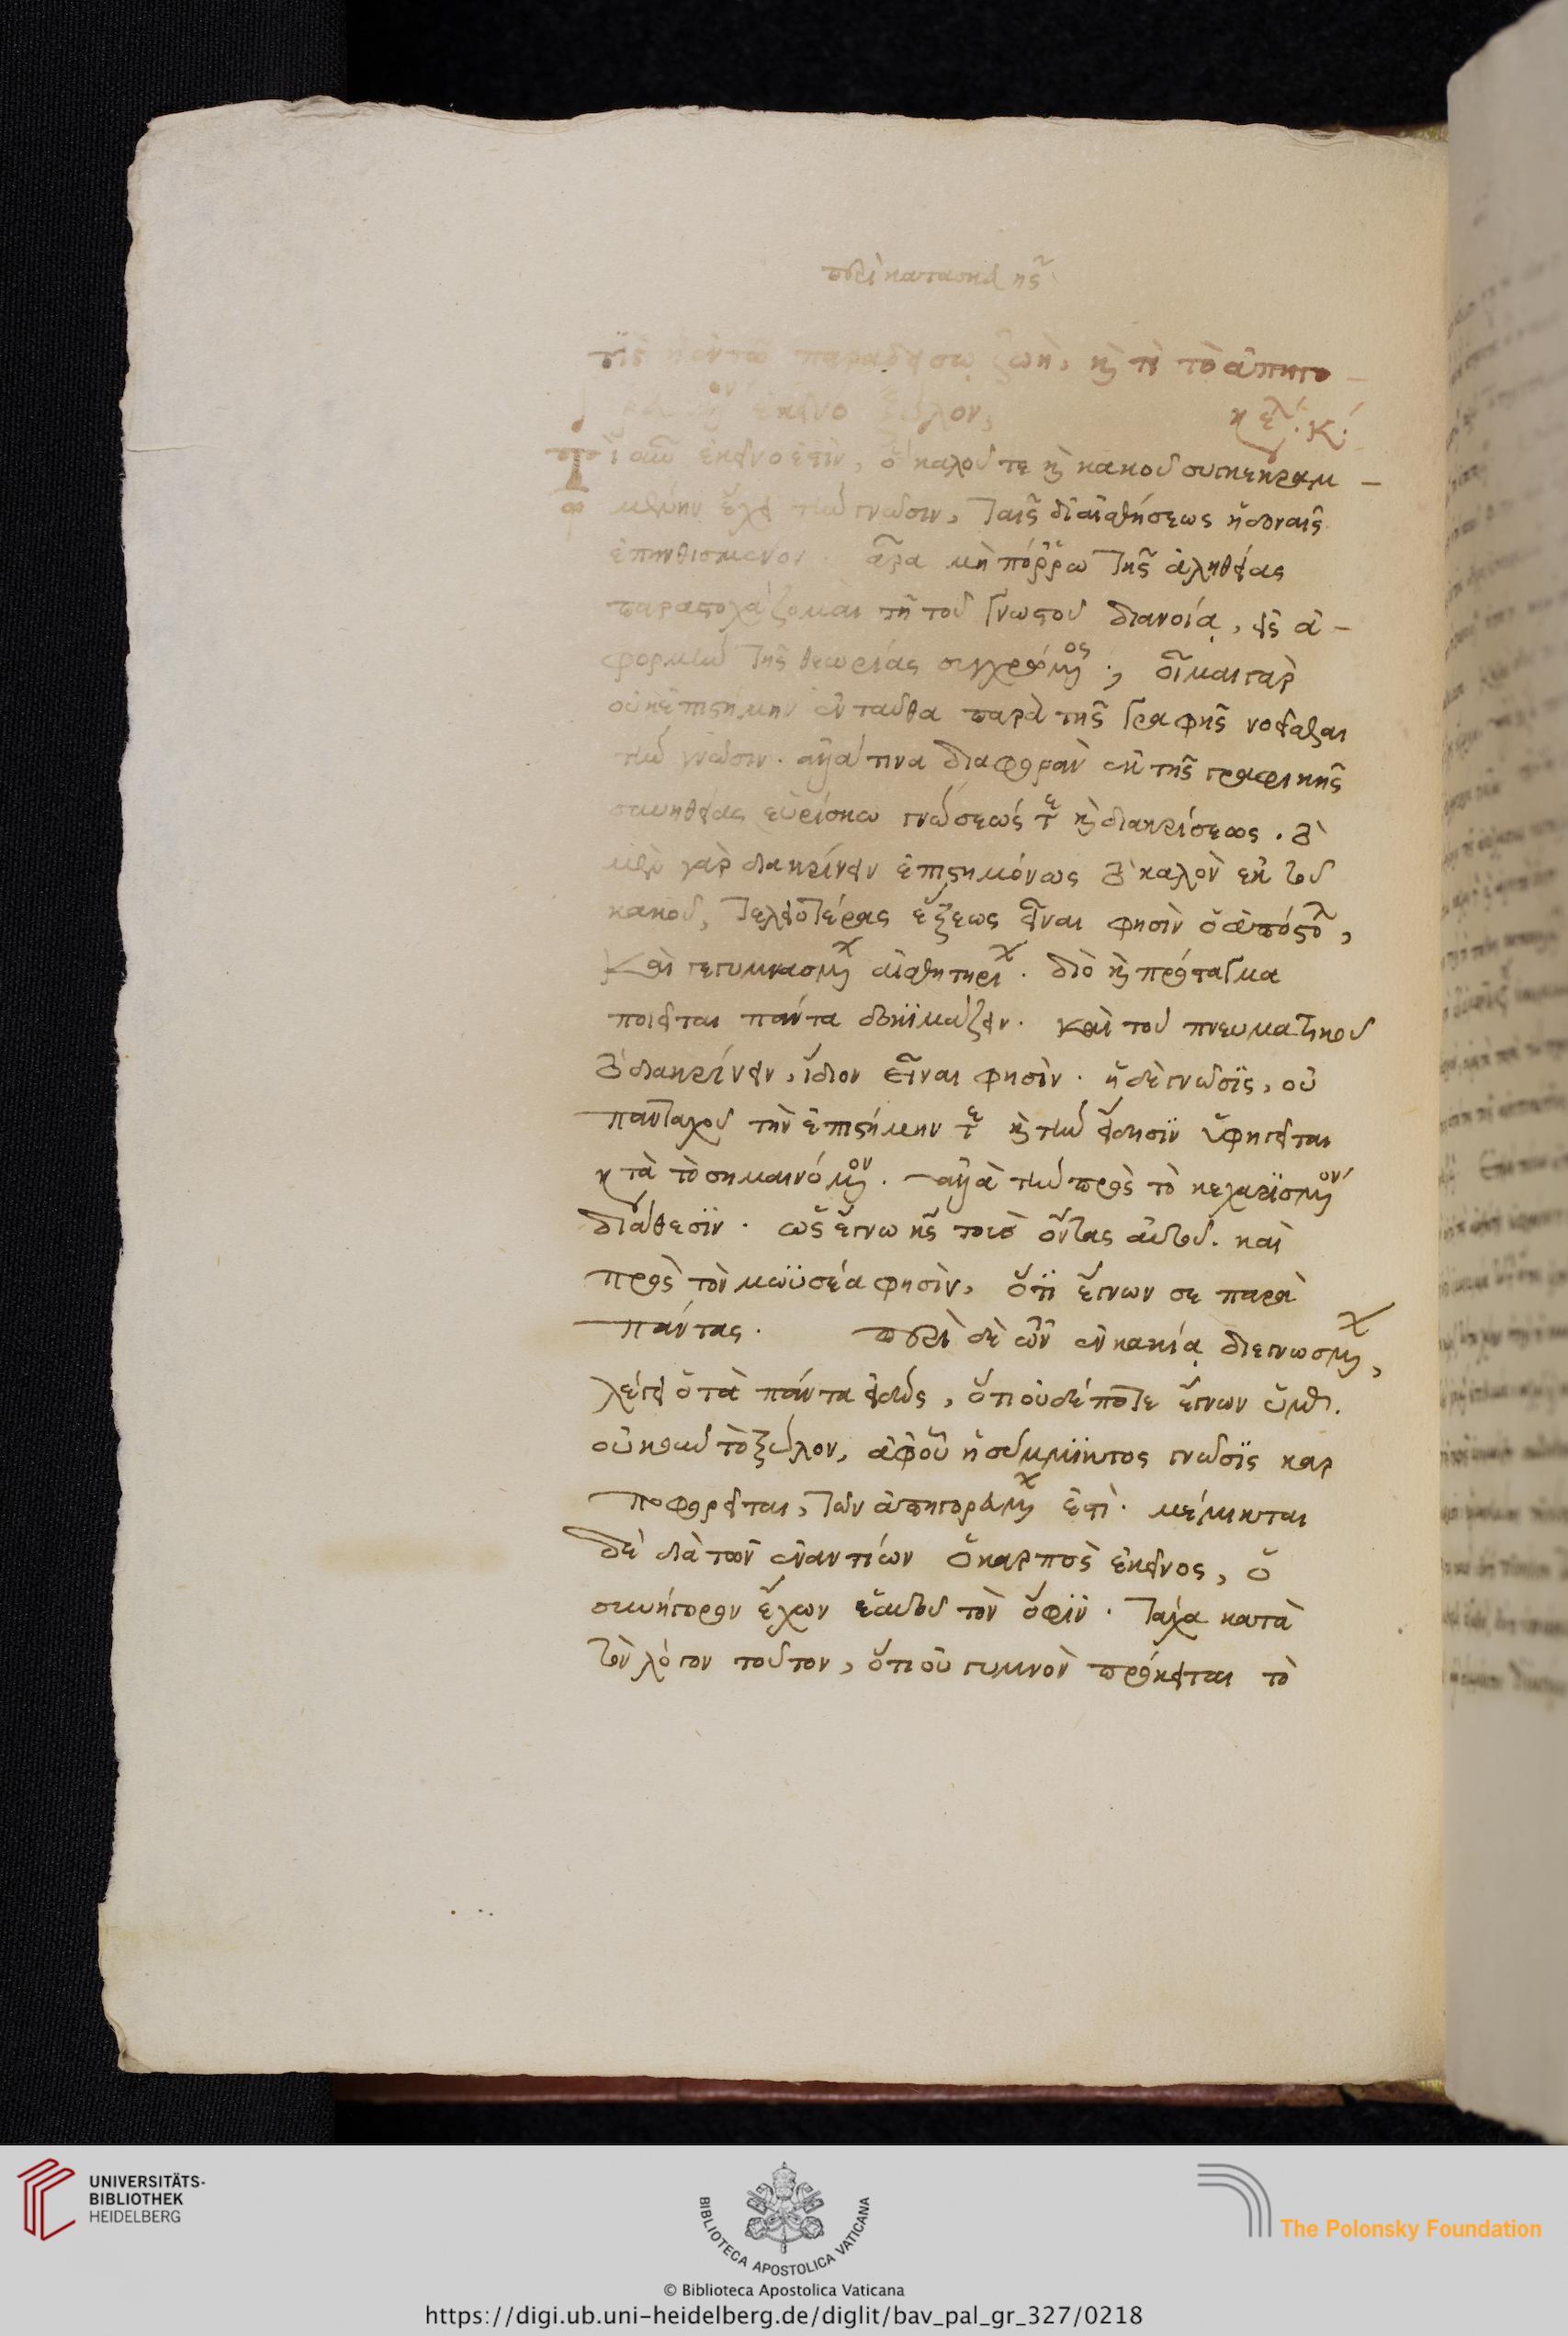 περὶ κατασκευῆς
τίς ἡ ἐν τῶ παραδείσω ζωὴ, καὶ τί τὸ ἀπηγο-
ρευμένον ἐκεῖνο ξύλον, κεφάλ. κ.
Τί οὖν ἐκεῖνο ἐστὶν, ὃ καλοῦ τε καὶ κακοῦ συγκεκραμ-
μένην ἔχει τὴν γνῶσιν, ταῖς δι' αἰσθήσεως ἡδοναῖς
ἐπηνθισμένον. ἆρα μὴ πόρρω τῆς ἀληθείας
παραστοχάζομαι τῆ τοῦ γνωστοῦ διανοία, εἰς ἀ-
φορμὴν τῆς θεωρίας συγχρώμενος; οἶμαι γὰρ
οὐκ ἐπιστήμην ἐνταῦθα παρὰ τῆς γραφῆς νοεῖσθαι
τὴν γνῶσιν. ἀλλά τινα διαφορὰν ἐκ τῆς γραφικῆς
συνηθείας εὑρίσκω γνώσεώς τε καὶ διακρίσεως. τὸ
μὲν γὰρ διακρίνειν ἐπιστημόνως τὸ καλὸν ἐκ τοῦ
κακοῦ, τελειοτέρας ἕξεως εἶναι φησὶν ὁ ἀπόστολος,
καὶ γεγυμνασμένων αἰσθητηρίων. διὸ καὶ πρόσταγμα
ποιεῖται πάντα δοκιμάζειν. καὶ τοῦ πνευματικοῦ
τὸ διακρίνειν, ἴδιον εἶναι φησὶν. ἡ δὲ γνῶσις, οὐ
πανταχοῦ τὴν ἐπιστήμην τε καὶ τὴν εἴδησιν ὑφηγεῖται
κατὰ τὸ σημαινόμενον. ἀλλὰ τὴν πρὸς τὸ κεχαρισμένον
διάθεσιν. ὡς ἔγνω κς τοὺς ὄντας αὐτοῦ. καὶ
πρὸς τὸν μωϋσέα φησὶν, ὅτι ἔγνων σε παρὰ
πάντας. περὶ δὲ ὧν ἐν κακία διεγνωσμένων,
λέγει ὁ τὰ πάντα εἰδὼς, ὅτι οὐδέποτε ἔγνων ὑμᾶς.
οὐκοῦν τὸ ξύλον, ἀφ' οὗ ἡ σύμμικτος γνῶσις καρ
ποφορεῖται, τῶν ἀπηγορευμένων ἐστὶ. μέμικται
δὲ διὰ τῶν ἐναντίων ὁ καρπὸς ἐκεῖνος, ὁ
συνήγορον ἔχων ἑαυτοῦ τὸν ὄφιν. τάχα κατὰ
τὸν λόγον τοῦτον, ὅτι οὐ γυμνὸν πρόκειται τὸ
UNIVERSITÄTS-
BIBLIOTHEK
HEIDELBERG
BIBLIOTECA APOSTOLICA VATICANA
© Biblioteca Apostolica Vaticana
The Polonsky Foundation
https://digi.ub.uni-heidelberg.de/diglit/bav_pal_gr_327/0218